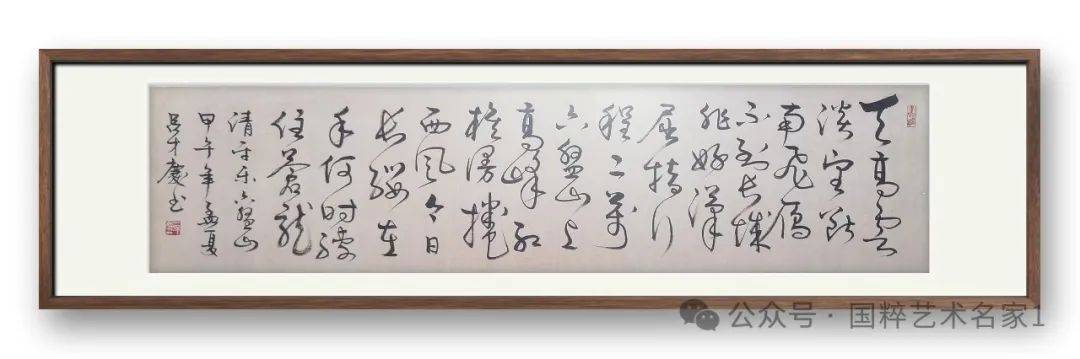 天高云
淡望断
南飞雁
不到长城
非好汉
屈指行
程二萬
六盘山上
高峰红
旗漫捲
西风今日
长缨在
手何时缚
住苍龙
清平乐六盘山
甲午年孟夏
吕才慶书
公众号 · 国粹艺术名家1